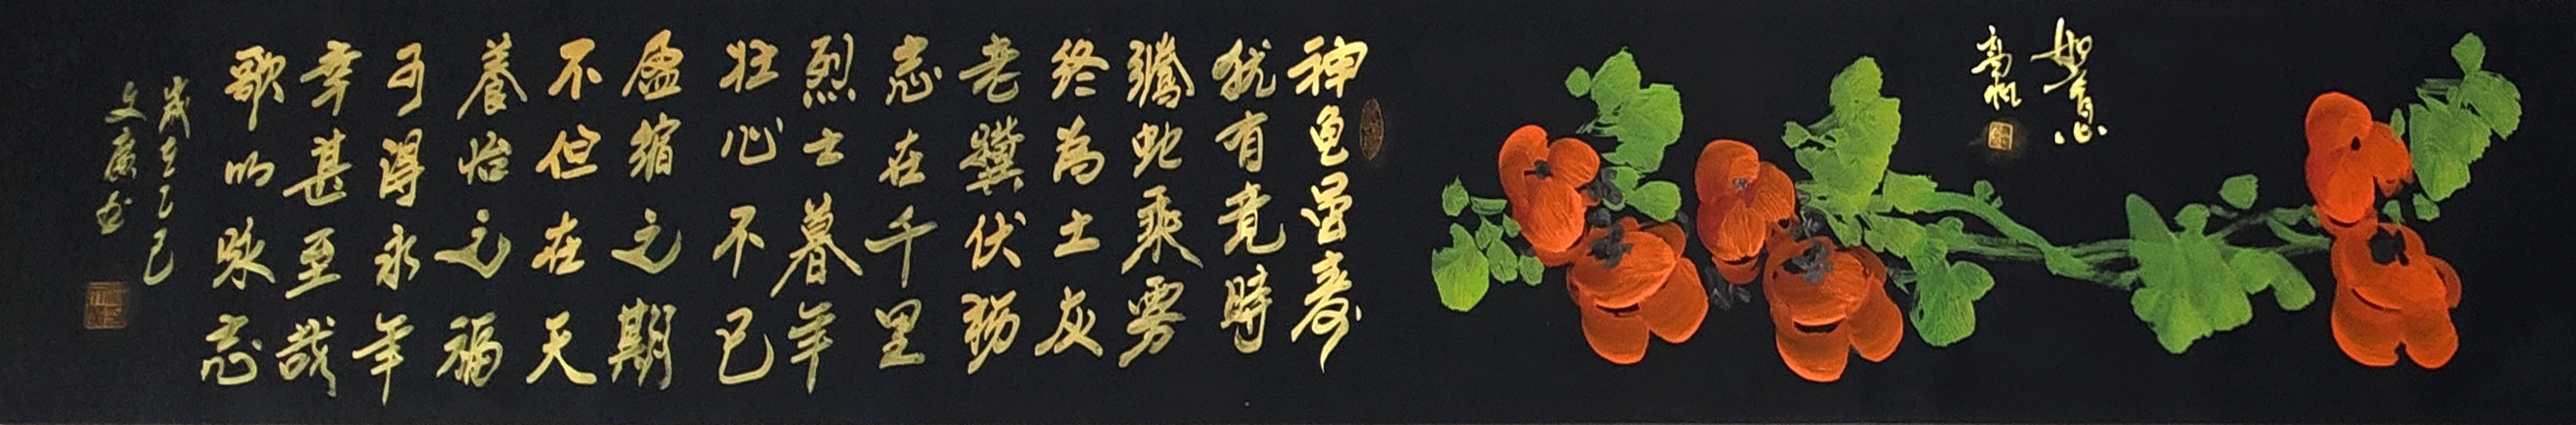 如意
神龟虽壽
犹有竟時
騰蛇乘雾
终為土灰
老驥伏枥
志在千里
烈士暮年
壮心不已
盈缩之期
不但在天
養怡之福
可得永年
幸甚至哉
歌以咏志
歲在乙巳
文廣书